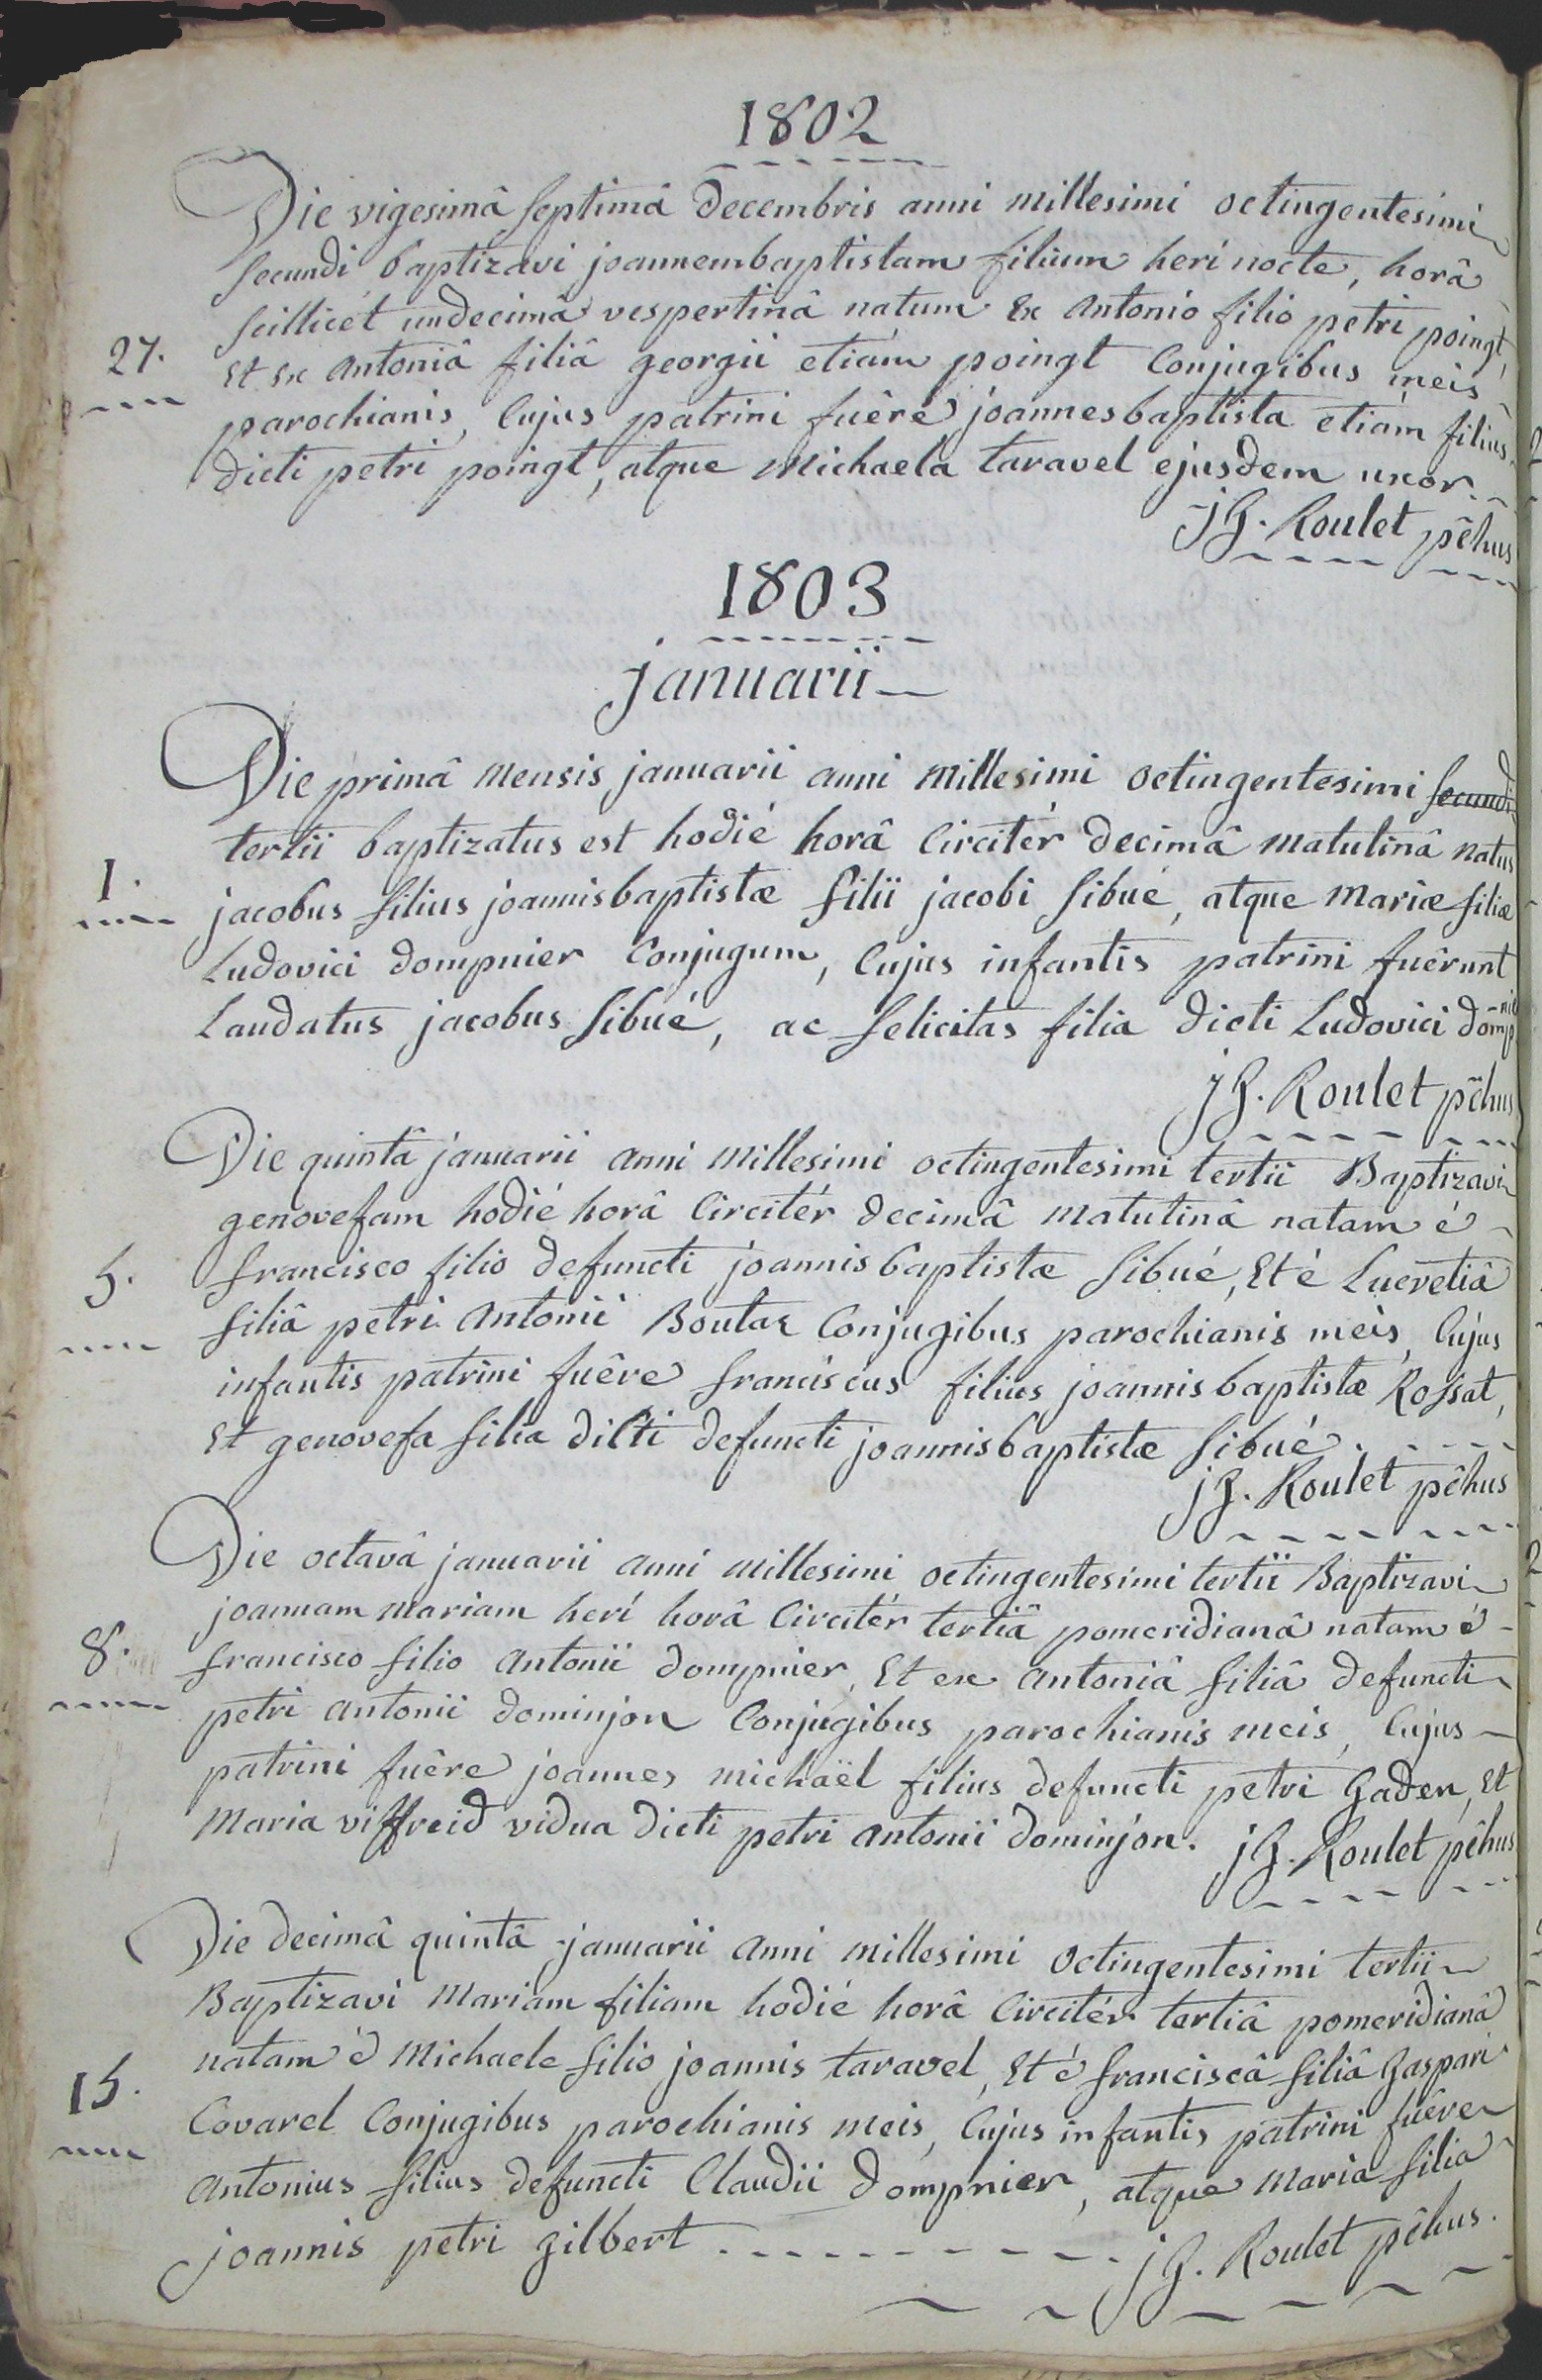 1802
Die vigesimâ septimâ decembris anni millesimi octingentesimi
secundi baptizavi joannembaptistam filium heri nocte, horâ
scillicét undecimâ vespertinâ natum Ex antonio filio petri poingt,
27. Et Ex antoniâ filiâ georgii etiám poingt Conjugibus meis
parochianis, Cujus patrini fuêre joannesbaptista etiám filius
dicti petri poingt, atque Michaela taravel ejusdem uxor.
jG. Roulet pêhus
1803
januarii
Die primâ mensis januarii anni millesimi octingentesimi secundi
tertii baptizatus est hodié horâ Circitér decimâ matutinâ natus
1. jacobus filius joannisbaptistæ filii jacobi sibué, atque mariæ filiæ
Ludovici dompnier Conjugum, Cujus infantis patrini fuêrunt
Laudatus jacobus sibué, ac felicitas filia dicti Ludovici dompnie
jG. Roulet pêhus
Die quintâ januarii anni millesimi octingentesimi tertii Baptizavi
genovefam hodié horâ Circitér decimâ matutinâ natam é
5. francisco filio defuncti joannisbaptistæ sibué, Et é Lucretiâ
filiâ petri antonii Boutaz Conjugibus parochianis meis, Cujus
infantis patrini fuêre franciscus filius joannisbaptistæ Rossat,
Et genovefa filia dicti defuncti joannisbaptistæ sibué.
jG. Roulet pêhus
Die octavâ januarii anni millesimi octingentesimi tertii Baptizavi
joannam mariam heri horâ Circitér tertiâ pomeridianâ natam é
8. francisco filio antonii dompnier, Et ex antoniâ filiâ defuncti
petri antonii dominjon Conjugibus parochianis meis, Cujus
patrini fuêre joannes michaël filius defuncti petri Gaden, Et
Maria viffreid vidua dicti petri antonii dominjon. jG. Roulet pêhus
Die decimâ quintâ januarii anni millesimi octingentesimi tertii
Baptizavi mariam filiam hodié horâ Circitér tertiâ pomeridianâ
natam é Michaele filio joannis taravel, Et é franciscâ filiâ Gaspari
15. Covarel Conjugibus parochianis meis, Cujus infantis patrini fuêre
antonius filius defuncti Claudii dompnier, atque maria filia
joannis petri gilbert jG. Roulet pêhus.